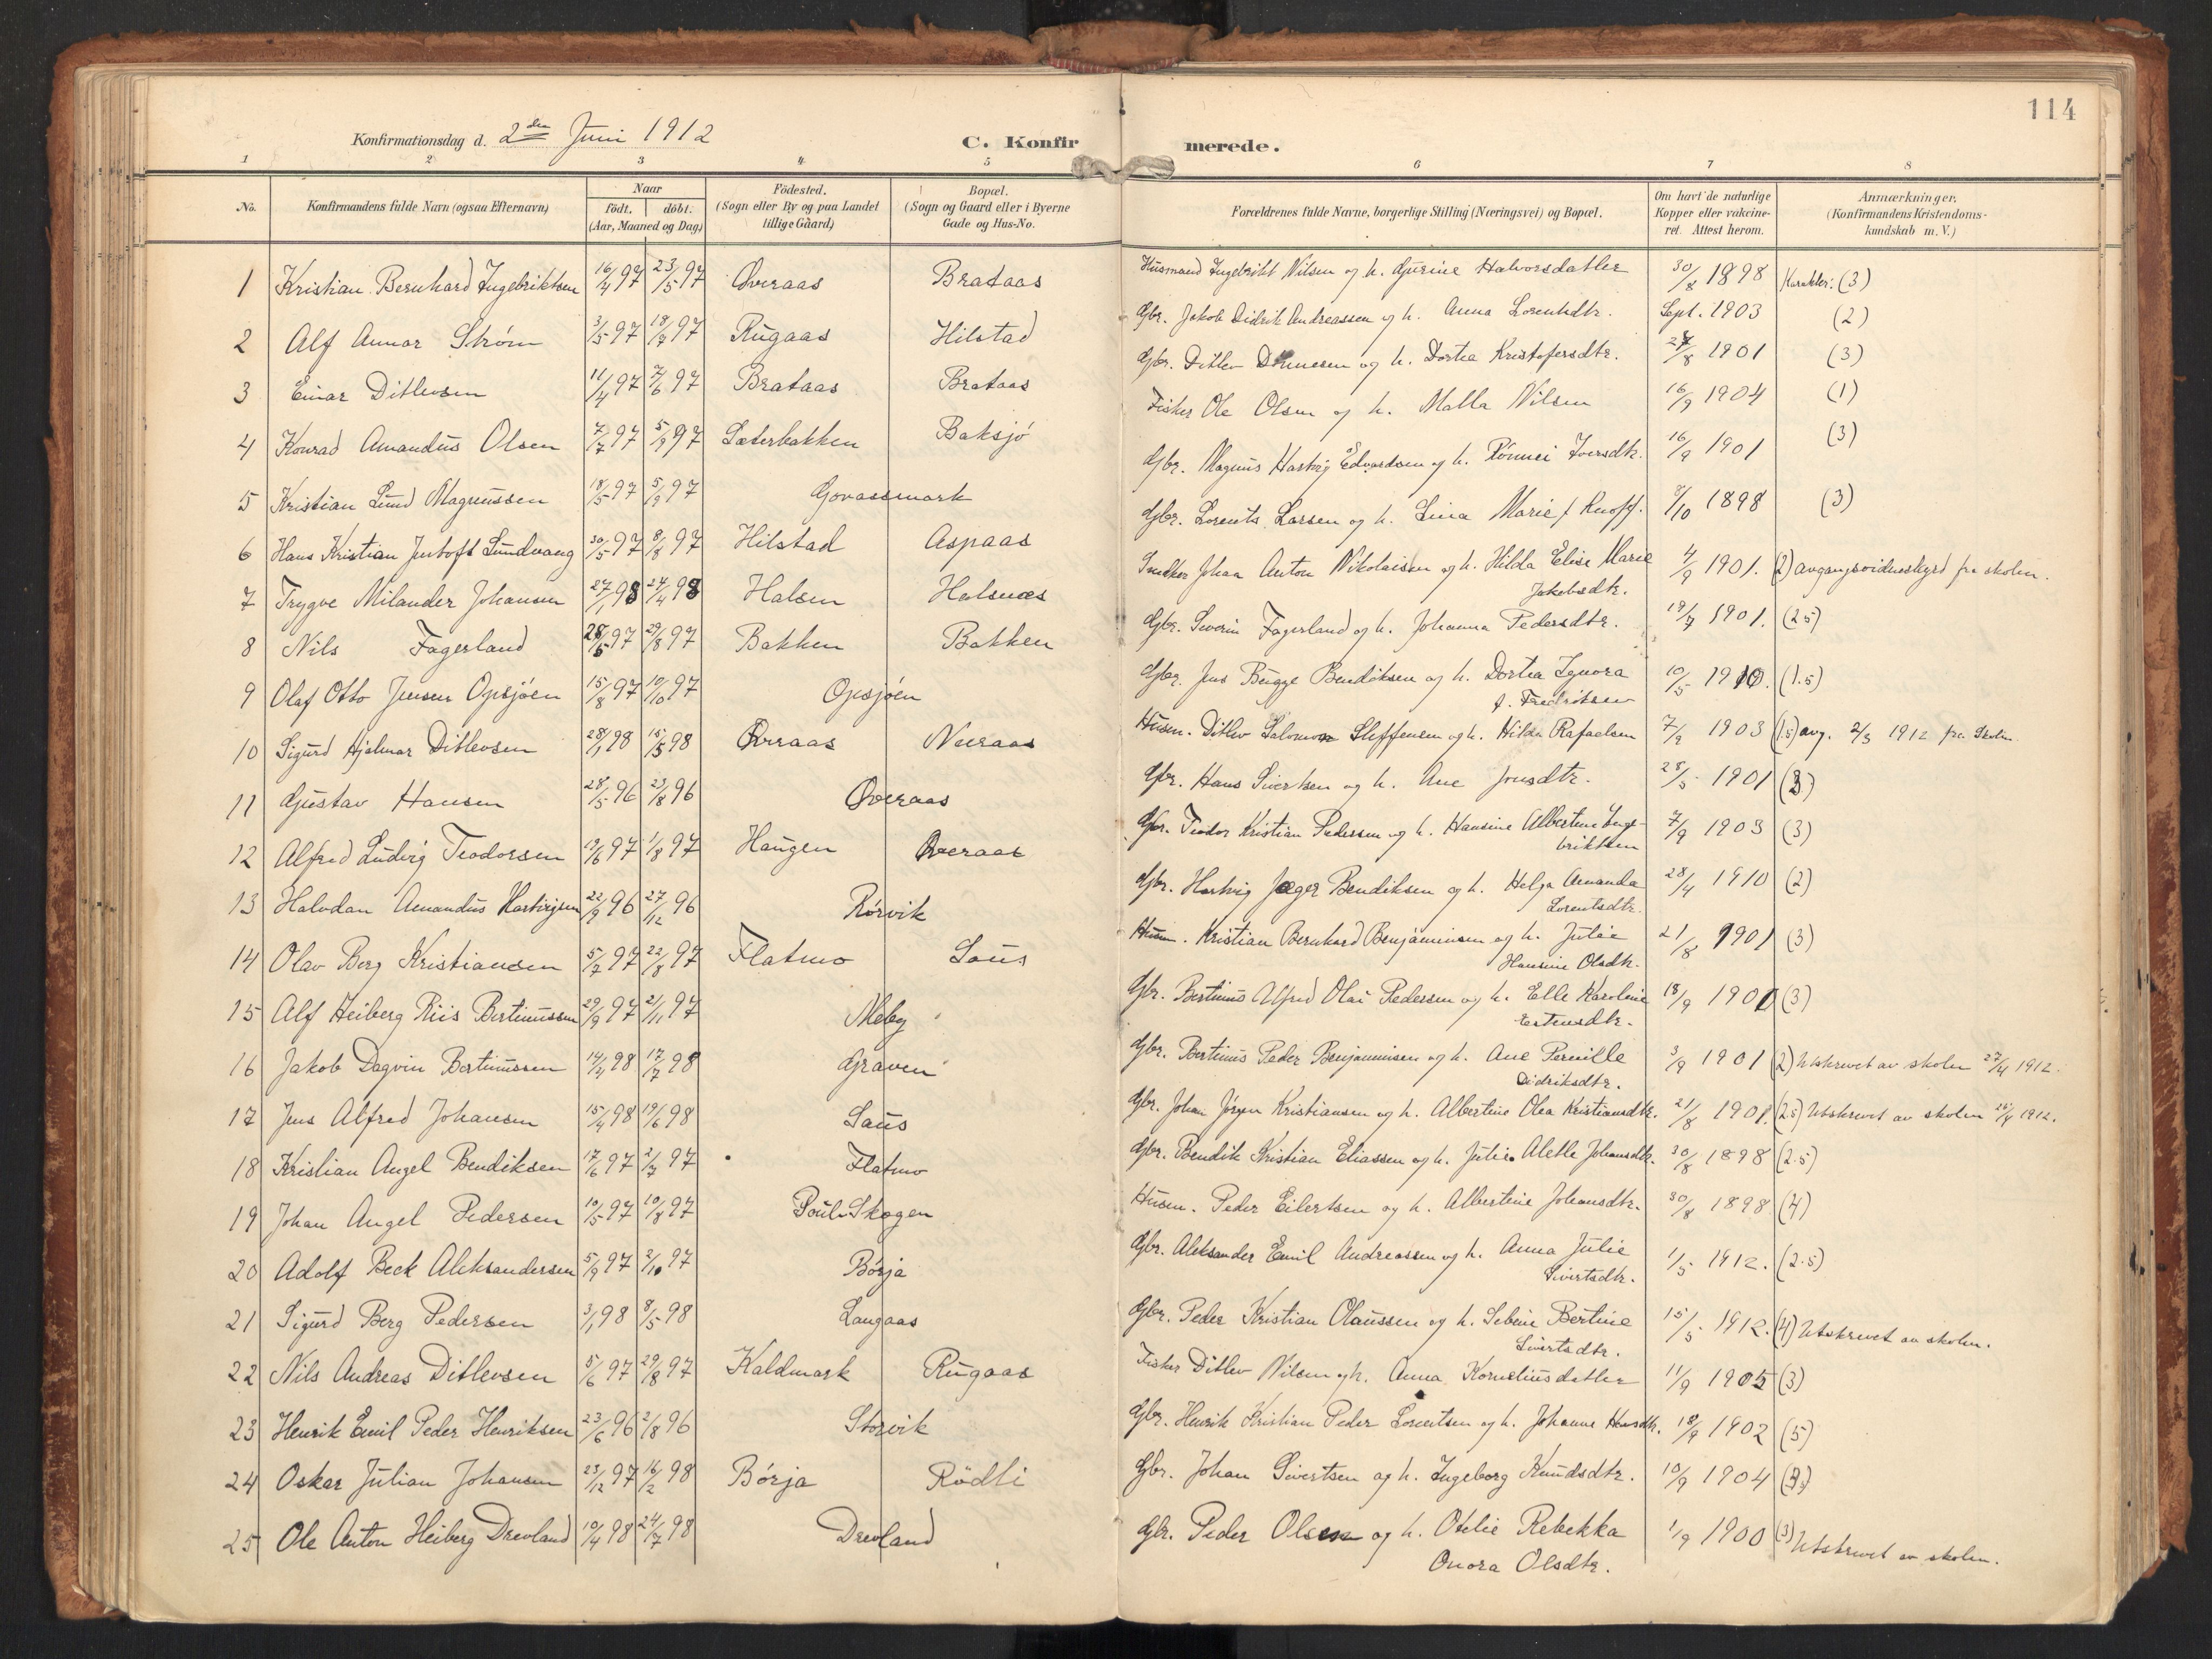 114
Konfirmationsdag d. 2den Juni 1912
C. Konfirmerede.
1 2 3 4 5 6 7 8
No.
Konfirmandens fulde Navn (ogsaa Efternavn)
Naar
födt. döbt.
(Aar, Maaned og Dag)
Födested.
(Sogn eller By og paa Landet
tillige Gaard)
Bopæl.
(Sogn og Gaard eller i Byerne
Gade og Hus-No.
Forældrenes fulde Navne, borgerlige Stilling (Næringsvei) og Bopæl.
Om havt de naturlige
Kopper eller vakcine-
ret. Attest herom.
Anmærkninger.
(Konfirmandens Kristendoms-
kundskab m. V.)
1 Kristian Bernhard Ingebriktsen 16/4 97 23/5 97 Øveraas Brataas Husmand Ingebrikt Nilsen og h. Gurine Halvorsdatter 30/8 1898 Karakter: (3)
2 Alf Annar Strøm 3/5 97 18/7 97 Rugaas Hilstad Gbr. Jakob Didrik Andreassen og h. Anna Lorentsdtr. Sept. 1903 (2)
3 Einar Ditlevsen 11/4 97 7/6 97 Brataas Brataas Gbr. Ditlev Dønnesen og h. Dortea Kristofersdtr. 27/8 1901 (3)
4 Konrad Amandus Olsen 7/7 97 5/9 97 Sæterbakken Baksjö Fisker Ole Olsen og h. Malla Nilsen 16/9 1904 (1)
5 Kristian Lund Magnussen 18/5 97 5/9 97 Govassmark Gbr. Magnus Hartvig Edvardsen og h. Rönnei Iversdtr. 16/9 1901 (3)
6 Hans Kristian Justoft Lundvang 30/5 97 8/8 97 Hilstad Aspaas Gbr. Lorents Larsen og h. Lina Marie f. Knoff. 8/10 1898 (3)
7 Trygve Milander Johansen 27/1 98 24/4 98 Halsen Halsnæs Snedker Johan Anton Nikolaisen og h. Hilda Elise Marie 4/9 1901. (2) avgangsvidnesbyrd fra skolen.
Jakobsdtr.
8 Nils Fagerland 28/6 97 29/8 97 Bakken Bakken Gbr. Severin Fagerland og h. Johanna Pedersdtr. 19/7 1901. (2.5)
9 Olaf Otto Jensen Opsjöen 15/8 97 10/10 97 Opsjöen Gbr. Jens Bugge Bendiksen og h. Dortea Ignora 10/5 1910. (1.5)
f. Fredriksen
10 Sigurd Hjalmar Ditlevsen 28/1 98 15/5 98 Øveraas Neeraas Husm. Ditlev Salomon Steffensen og h. Hilda Rafaelsen 7/9 1903 (1.5) avg. 2/3 1912 fra Skolen
11 Gustav Hansen 28/5 96 23/8 96 Øveraas Gbr. Hans Sivertsen og h. Ane Jonsdtr. 28/5 1901 (3)
12 Alfred Ludvig Teodorsen 19/6 97 1/8 97 Haugen Øveraas Gbr. Teodor Kristian Pedersen og h. Hansine Albertine Inge- 7/9 1903 (3)
briktsen
13 Halvdan Amandus Hartvigsen 22/9 96 27/12 96 Rörvik Gbr. Hartvig Jæger Bendiksen og h. Helga Amanda 28/4 1910 (2)
Lorentsdtr.
14 Olav Berg Kristiansen 5/7 97 22/8 97 Flatmo Saus Husm. Kristian Bernhard Benjaminsen og h. Julie 21/8 1901 (3)
Hansine Olsdtr.
15 Alf Heiberg Riis Bertinussen 29/9 97 21/11 97 Meby Gbr. Bertinus Alfred Olai Pedersen og h. Elle Karoline 18/9 1901 (3)
Estensdtr.
16 Jakob Dagvin Bertinussen 14/4 98 17/7 98 Graven Gbr. Bertinus Peder Benjaminsen og h. Ane Pernille 3/9 1901 (2) Utskrevet av skolen 27/4 1912.
Didriksdtr.
17 Jens Alfred Johansen 15/4 98 19/6 98 Saus Gbr. Johan Jörgen Kristiansen og h. Albertine Olea Kristiansdtr. 21/8 1901. (2.5) Utskrevet av skolen 25/4 1912.
18 Kristian Angel Bendiksen 17/6 97 2/7 97 Flatmo Gbr. Bendik Kristian Eliassen og h. Julie Alette Johansdtr. 30/8 1898 (2.5)
19 Johan Angel Pedersen 10/5 97 10/8 97 Soul-Skogen Husm. Peder Eilertsen og h. Albertine Johansdtr. 30/8 1898 (4)
20 Adolf Beck Aleksandersen 5/9 97 2/10 97 Börja Gbr. Aleksander Emil Andreassen og h. Anna Julie 1/5 1912. (2.5)
Sivertsdtr.
21 Sigurd Berg Pedersen 3/1 98 8/5 98 Langaas Gbr. Peder Kristian Olaussen og h. Sebine Bertine 15/5 1912. (4) Utskrevet av skolen.
Sivertsdtr.
22 Nils Andreas Ditlevsen 5/6 97 29/8 97 Kaldmark Rugaas Fisker Ditlev Nilsen og h. Anna Korneliusdatter 11/9 1905 (3)
23 Henrik Emil Peder Henriksen 23/6 96 2/8 96 Storvik Gbr. Henrik Kristian Peder Lorentsen og h. Johanna Hansdtr. 18/9 1902 (5)
24 Oskar Julian Johansen 23/12 97 16/2 98 Börja Rödli Gbr. Johan Sivertsen og h. Ingeborg Knudsdtr. 10/9 1904
25 Ole Anton Heiberg Drevland 10/4 98 24/7 98 Drevland Gbr. Peder Olsen og h. Otelie Rebekka 1/9 1900 (3) Utskrevet av skolen.
Onora Olsdtr.